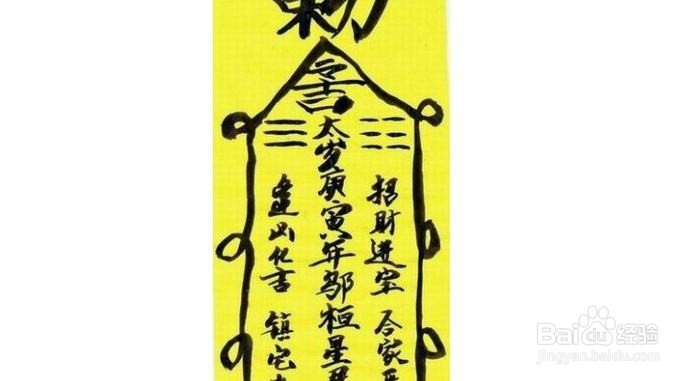 敕
令吉
太岁庚寅年邬桓星
招財进宝 合家
逢凶化吉 镇宅
Baidu经验
jingyan.baidu.com